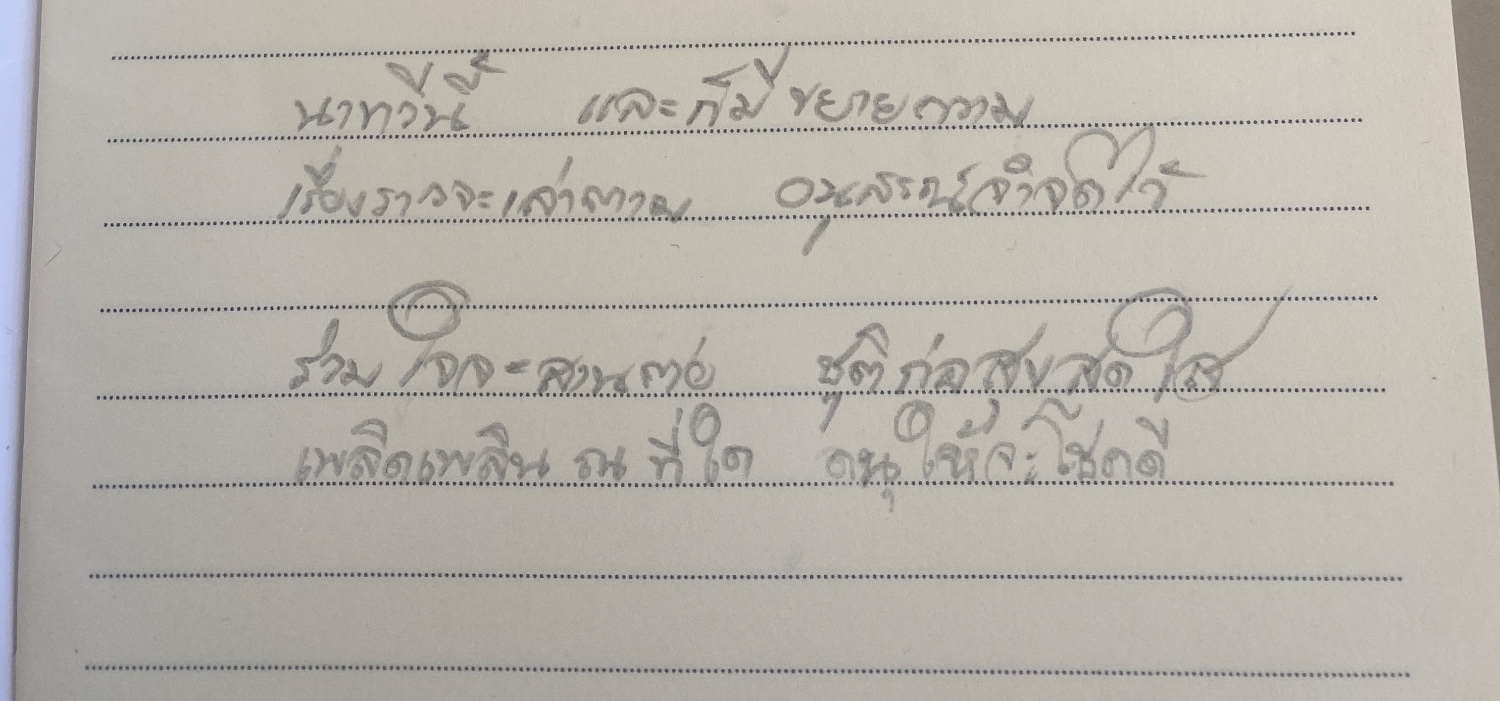 นาทีนี้ และก็มี ขยายความ
เรื่องราวจะเล่าตาม อนุสรณ์จำจดไว้
ร่วมใจจะสานต่อ ชุติก่อสุขสดใส
เพลิดเพลิน ณ ที่ใด ดนุให้จะโชคดี